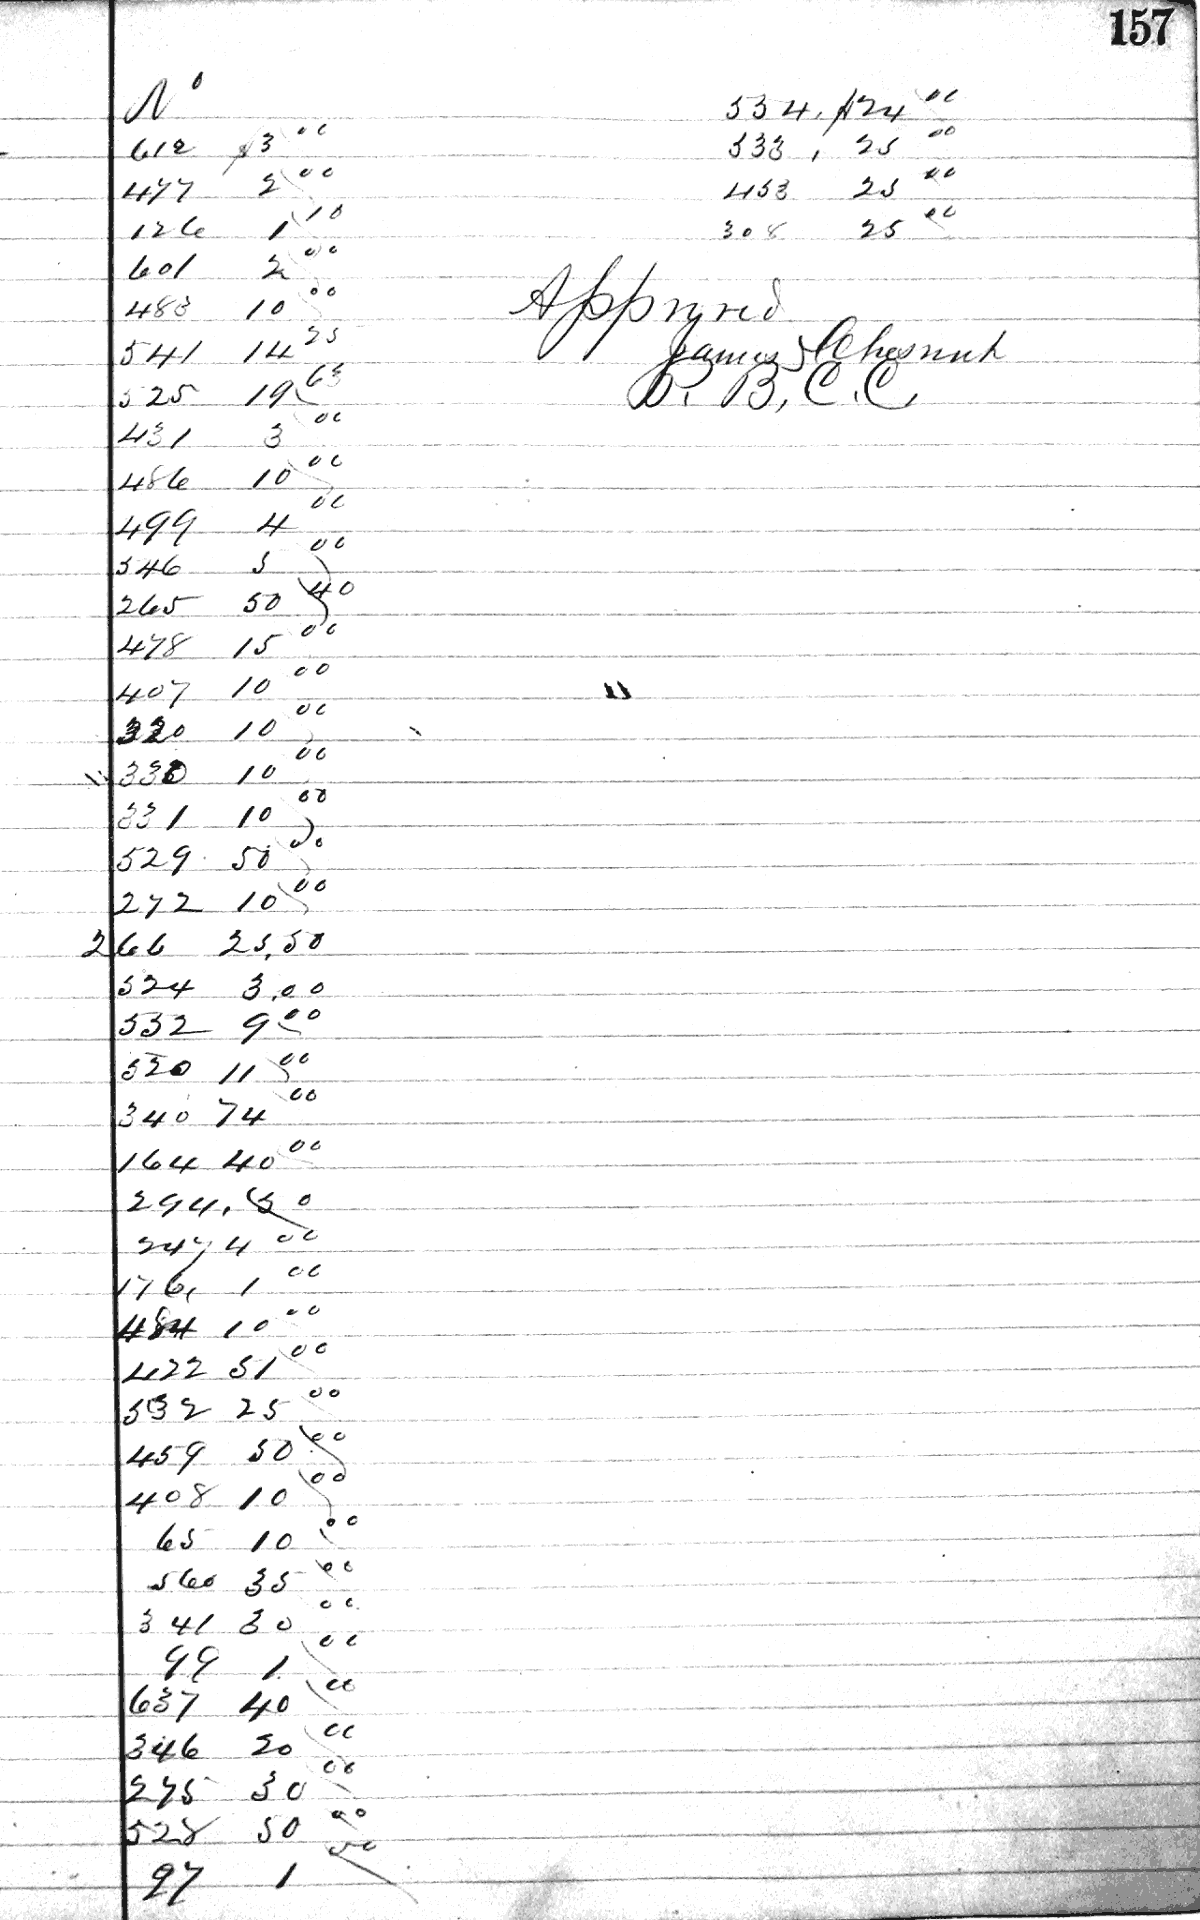 157
No
612 $3 00
477 2 00
126 1 10
601 2 00
483 10 00
541 14 25
525 19 63
431 3 00
486 10 00
499 4 00
546 5 00
265 50 40
478 15 00
407 10 00
320 10 00
330 10 00
331 10 00
529 50 00
272 10 00
266 25,50
524 3.00
532 9 00
520 11 00
340 74 00
164 40 00
294. 50
247 4 00
176, 1 00
484 10 00
422 51 00
532 25 00
459 50 00
408 10 00
65 10 00
560 35 00
341 30 00
99 1 00
637 40 00
346 20 00
275 30 00
528 50 00
97 1 50
534. $24 00
533, 25 00
453 25 00
308 25 00
Approved
James Chesnut
P. B, C. C,